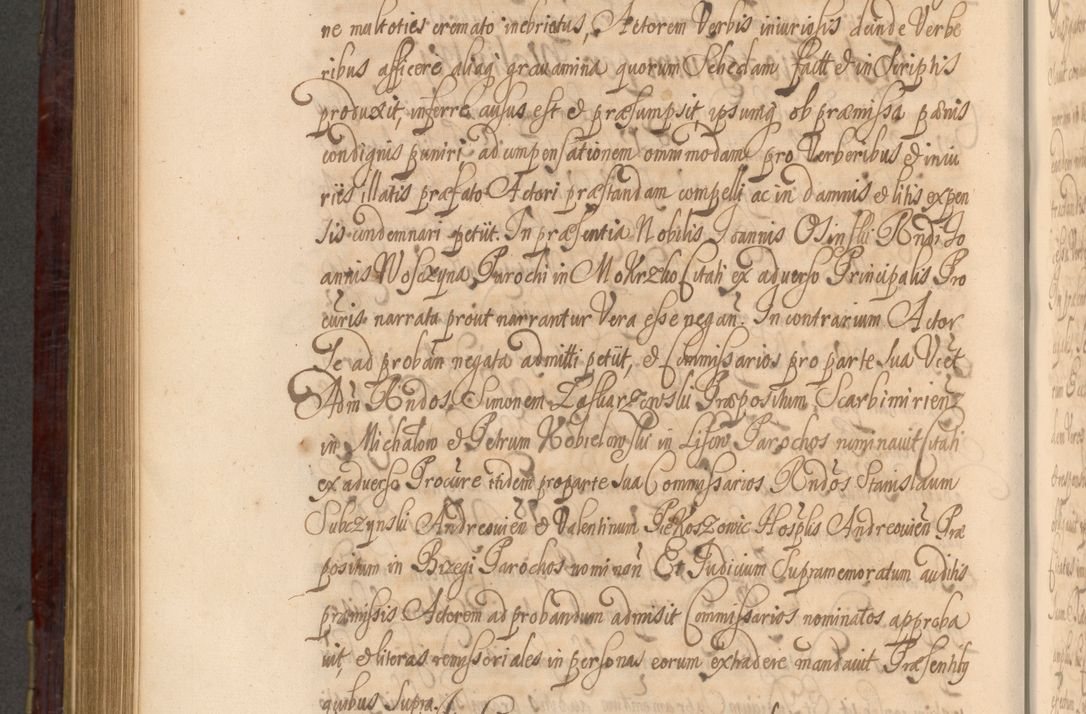 ne multoties cremato inebriatus, Actorem Verbis iniuriosis deinde Verbe
ribus afficere aliaq gravamina quorum Schedam facit et in scriptis
produxit, inferre ausus est et præsumpsit, ipsumq ob præmissa pænis
condignis puniri ad compensationem omnimodam pro Verberibus et iniu
riis illatis præfato Actori præstandam compelli ac in damnis et litis expen
sis condemnari petiit. In præsentia Nobilis Joannis Osinski Rndi Jo
annis Woszczyna Parochi in Mokrzko Citati ex adverso Principalis Pro
curis narrata prout narrantur Vera esse negañ. In contrarium Actor
Se ad probañ negata admitti petiit, et Commissarios pro parte sua Vict
Adm Rndos Simonem Zaskarzewski Præpositum Scarbimirienz
in Michałow et Petrum Kobielowski in Lisow Parochos nominavit Citati
ex adverso Procure itidem pro parte sua Commissarios Rndos Stanislaum
Subczynski Andreovien et Valentinum Piekoszowic Hosplis Andreovien Præ
positum in Brzegi Parochos nominañ Et Judicium Supramemoratum auditis
præmissis Actorem ad probandum admisit Commissarios nominatos approba
vit, et literas remissoriales in personas eorum extradere mandavit Præsentibq
quibus supra.